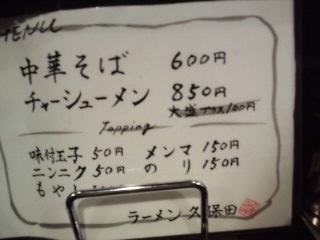 MENU
中華そば 600円
チャーシューメン 850円
大盛プラス100円
Topping
味付玉子 50円 メンマ 150円
ニンニク 50円 のり 150円
もやし
ラーメン久保田